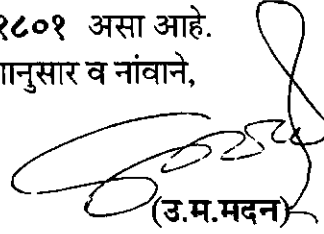 १८०१ असा आहे.
नुसार व नांवाने,
(उ.म.मदन)